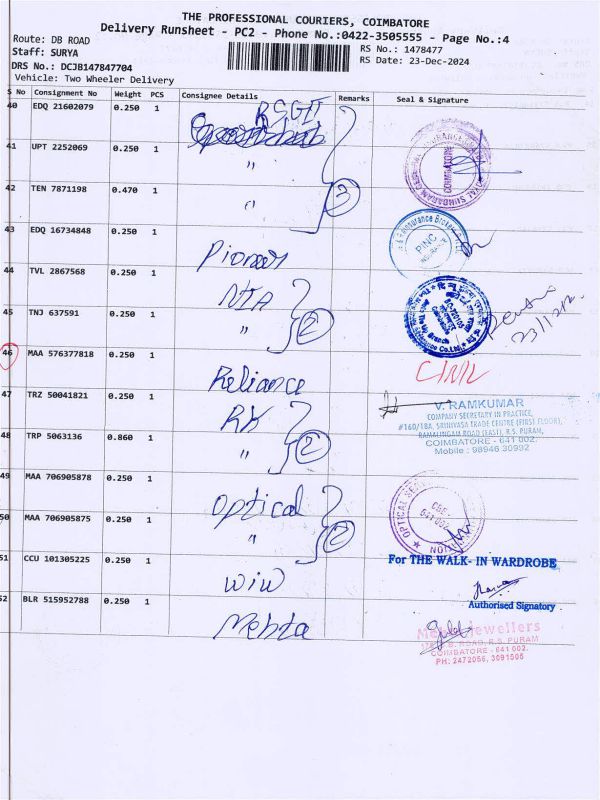 THE PROFESSIONAL COURIERS, COIMBATORE
Delivery Runsheet - PC2 - Phone No.:0422-3505555 - Page No.:4
Route: DB ROAD
RS No.: 1478477
Staff: SURYA
RS Date: 23-Dec-2024
DRS No.: DCJB147847704
Vehicle: Two Wheeler Delivery
S No Consignment No Weight PCS Consignee Details Remarks Seal & Signature
40 EDQ 21602079 0.250 1 RSGI
41 UPT 2252069 0.250 1 "
42 TEN 7871198 0.470 1 " 3
43 EDQ 16734848 0.250 1 Pioneer
44 TVL 2867568 0.250 1 NIA
45 TNJ 637591 0.250 1 " 2
46 MAA 576377818 0.250 1 Reliance
47 TRZ 50041821 0.250 1 RK
48 TRP 5063136 0.860 1 " 2
49 MAA 706905878 0.250 1 optical
50 MAA 706905875 0.250 1 " 2
51 CCU 101305225 0.250 1 WIW
52 BLR 515952788 0.250 1 Mehta
COIMBATORE
PINC
INSURANCE
V. RAMKUMAR
COMPANY SECRETARY IN PRACTICE,
#160/18A, SRINIVASA TRADE CENTRE (FIRST FLOOR),
RAMALINGAM ROAD (EAST), R.S. PURAM,
COIMBATORE - 641 002.
Mobile : 98946 30992
OPTICAL
CBE
641 002
For THE WALK- IN WARDROBE
Authorised Signatory
Mehta Jewellers
B. ROAD, R.S. PURAM
COIMBATORE - 641 002.
PH: 2472056, 3091506